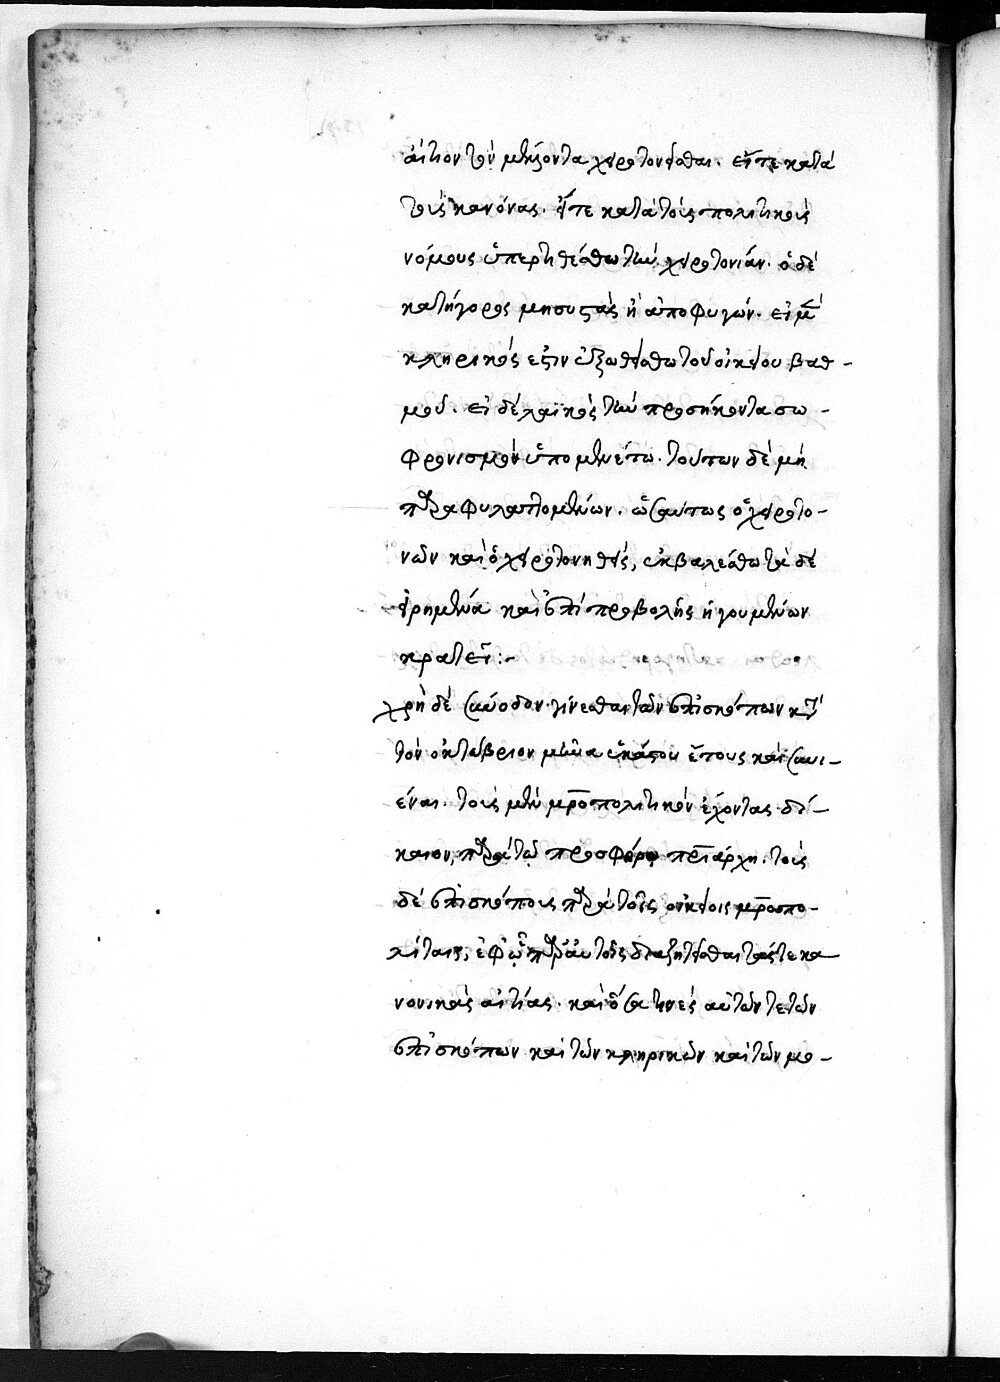 αἴτιον τὸν μέλλοντα χειροτονεῖσθαι. εἴτε κατὰ
τοὺς κανόνας. εἴτε κατὰ τοὺς πολιτικοὺς
νόμους ὑπερτιθέσθω τὴν χειροτονίαν. ὁ δὲ
κατήγορος μὴ συστὰς ἢ ἀποφυγών. εἰ μὲν
κληρικός ἐστιν ἐξωθείσθω τοῦ οἰκείου βαθ-
μοῦ. εἰ δὲ λαϊκὸς τὴν προσήκοντα σω-
φρονισμὸν ὑπομενέτω. τούτων δὲ μὴ
παραφυλαττομένων. ὡσαύτως ὁ χειροτο-
νῶν καὶ ὁ χειροτονηθείς, ἐκβαλέσθω τὰ δὲ
εἰρημένα καὶ ἐπὶ προβολῆς ἡγουμένων
κρατεῖ:-
χρὴ δὲ σύνοδον γίνεσθαι τῶν ἐπισκόπων κατὰ
τὸν ὀκτώβριον μῆνα ἑκάστου ἔτους καὶ συνι-
έναι. τοὺς μὲν μητροπολιτικὸν ἔχοντας δί-
καιον, παρὰ τῷ προσφόρῳ πατριάρχῃ. τοὺς
δὲ ἐπισκόπους παρὰ τοῖς οἰκείοις μητροπο-
λίταις, ἐφ ᾧ παρ' αὐτοῖς διαζητεῖσθαι τάς τε κα-
νονικὰς αἰτίας. καὶ ὅσα τινὲς αὐτῶν τε τῶν
ἐπισκόπων καὶ τῶν κληρικῶν καὶ τῶν μο-